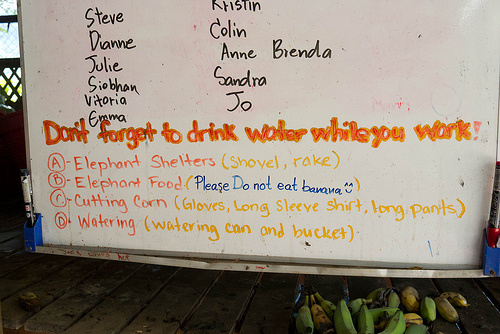 Steve
Dianne
Julie
Siobhan
Vitoria
Emma
Kristin
Colin
Anne Brenda
Sandra
Jo
Don't forget to drink water while you work!
A - Elephant Shelters (shovel, rake)
B - Elephant Food (Please Do not eat banana)
C - Cutting Corn (Gloves, Long Sleeve Shirt, long pants)
D - Watering (watering can and bucket).